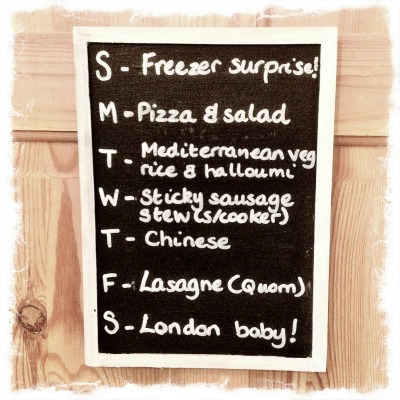 S - Freezer surprise!
M - Pizza & salad
T - Mediterranean veg
rice & halloumi
W - Sticky sausage
stew (s/cooker)
T - Chinese
F - Lasagne (Quorn)
S - London baby!